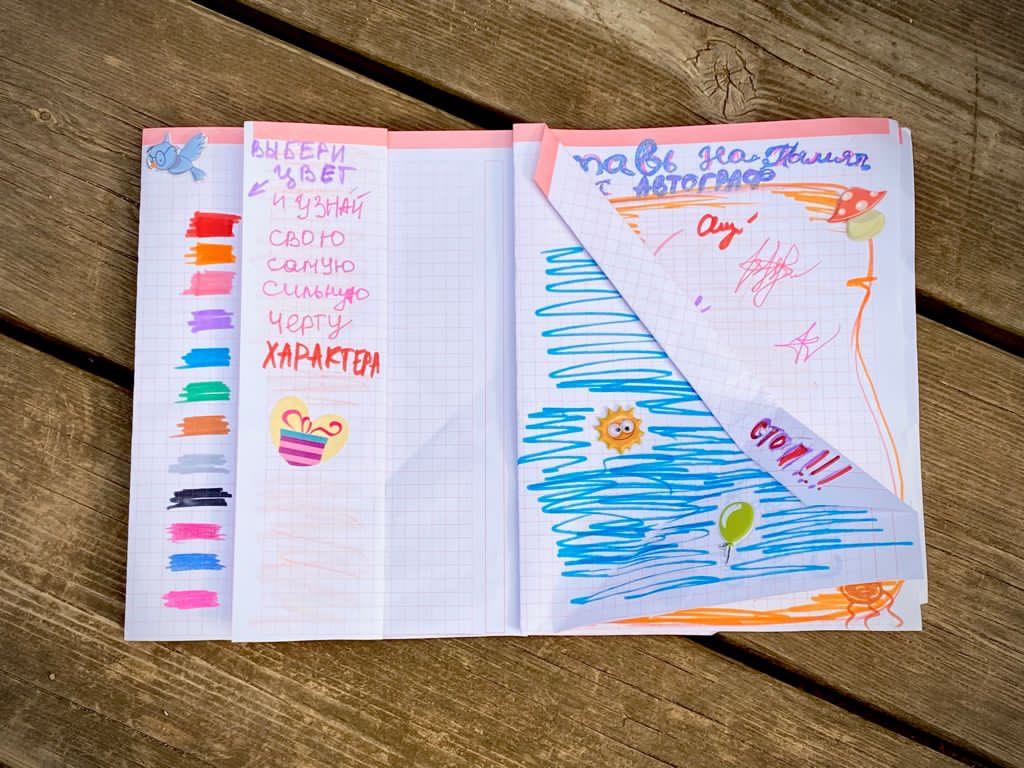 ВЫБЕРИ
ЦВЕТ
И УЗНАЙ
СВОЮ
самую
сильную
черту
ХАРАКТЕРА
тавь на Память
с АВТОГРАФ
СТОП!!!